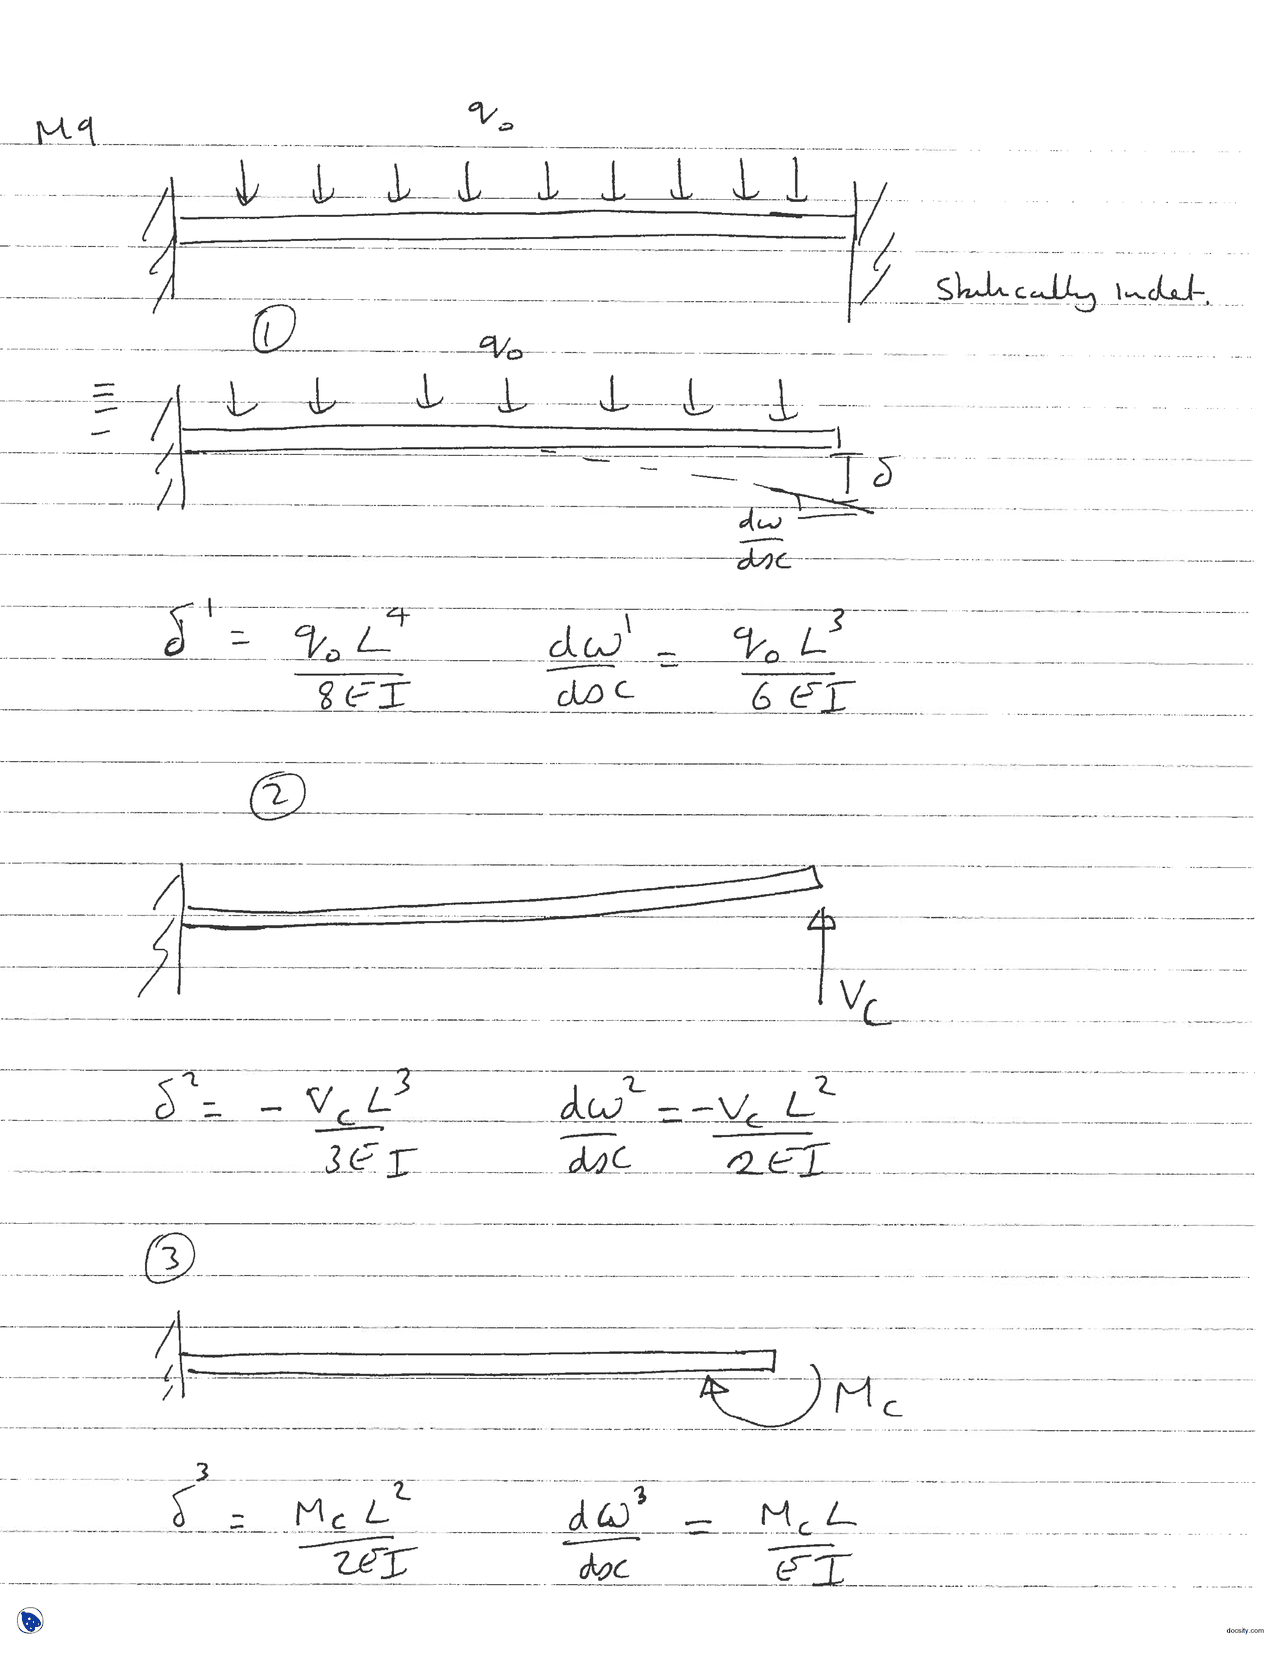 M9
q₀
Statically indet.
①
q₀
≡
δ
dω/dx
δ¹ = q₀L⁴/8EI    dω¹/dx = q₀L³/6EI
②
V_C
δ² = -V_C L³/3EI    dω²/dx = -V_C L²/2EI
③
M_C
δ³ = M_C L²/2EI    dω³/dx = M_C L/EI
docsity.com